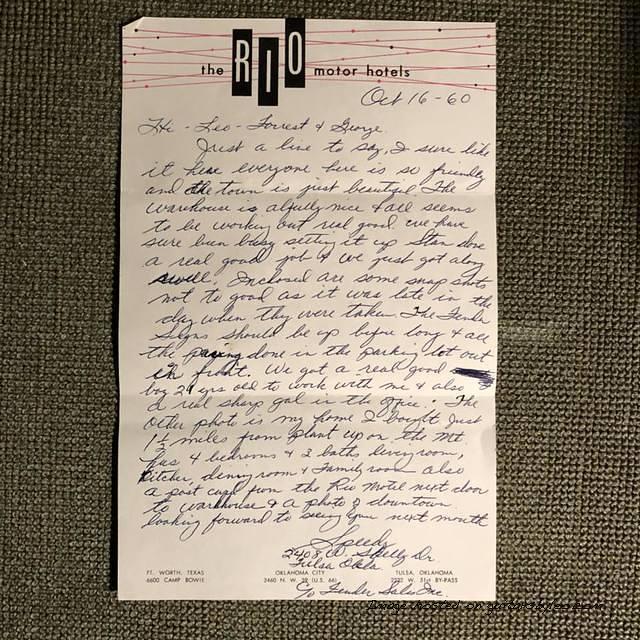 the RIO motor hotels
Oct 16-60
Hi - Leo - Forrest & George.
Just a line to say, I sure like
it here everyone here is so friendly
and the town is just beautiful The
warehouse is alfully nice & all seems
to be working out real good. We have
sure been busy setting it up Stan done
a real good job & we just got along
swell. Inclosed are some snap shots
not to good as it was late in the
day when they were taken. The Fender
Signs should be up before long & all
the paving done in the parking lot out
in front. We got a real good
boy 24 yrs old to work with me & also
a real sharp gal in the office. The
other photo is my home I bought Just
1½ miles from plant up on the Mt.
has 4 bedrooms & 2 baths livingroom,
kitchen, dining room & Family room also
a post card from the Rio Motel next door
to warehouse & a photo of downtown
looking forward to seeing you next month
Speedy
2408 W. Skelly Dr
Tulsa Okla
c/o Fender Sales Inc.
FT. WORTH, TEXAS
6600 CAMP BOWIE
OKLAHOMA CITY
3460 N. W. 39 (U.S. 66)
TULSA, OKLAHOMA
W. 51st BY-PASS
Image hosted on